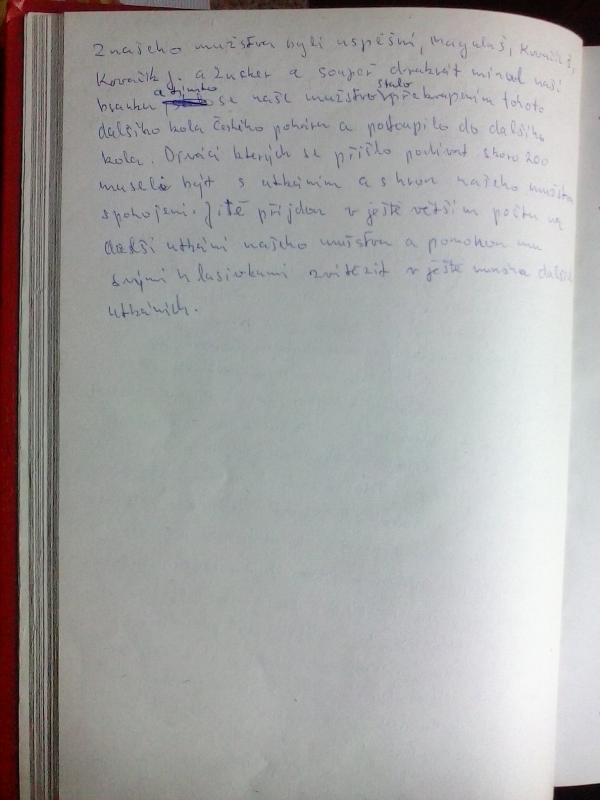 Znašeho mužstva byli uspěšní, Magaluš, Kovačik ž,
Kovačik j. a Zucker a soupeř dvakrát minul naši
branku a tímto se naše mužstvo stalo překvapením tohoto
dalšího kola českého poháru a postoupilo do dalšího
kola. Diváci kterých se přišlo podívat skoro 200
museli být s utkáním a s hrou našeho mužstva
spokojeni. Jitě přijdou v ještě větším počtu na
další utkání našeho mužstva a pomohou mu
svými hlasivkami zvítězit v ještě mnoha dalších
utkáních.